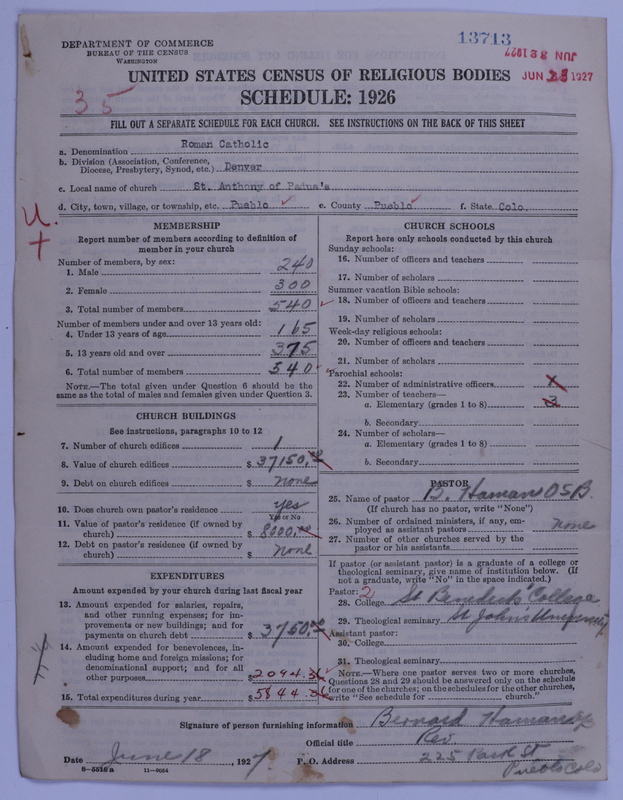 DEPARTMENT OF COMMERCE
BUREAU OF THE CENSUS
WASHINGTON
13713
JUN 28 1927
JUN 28 1927
UNITED STATES CENSUS OF RELIGIOUS BODIES
SCHEDULE: 1926
35
FILL OUT A SEPARATE SCHEDULE FOR EACH CHURCH. SEE INSTRUCTIONS ON THE BACK OF THIS SHEET
a. Denomination Roman Catholic
b. Division (Association, Conference,
Diocese, Presbytery, Synod, etc.) Denver
c. Local name of church St. Anthony of Padua's
d. City, town, village, or township, etc. Pueblo e. County Pueblo f. State Colo.
U.
MEMBERSHIP
Report number of members according to definition of
member in your church
Number of members, by sex:
1. Male 240
2. Female 300
3. Total number of members 540
Number of members under and over 13 years old:
4. Under 13 years of age 165
5. 13 years old and over 375
6. Total number of members 540
NOTE.—The total given under Question 6 should be the
same as the total of males and females given under Question 3.
CHURCH BUILDINGS
See instructions, paragraphs 10 to 12
7. Number of church edifices 1
8. Value of church edifices $ 37150.00
9. Debt on church edifices $ none
10. Does church own pastor's residence yes
Yes or No
11. Value of pastor's residence (if owned by
church) $ 8000.00
12. Debt on pastor's residence (if owned by
church) $ none
EXPENDITURES
Amount expended by your church during last fiscal year
13. Amount expended for salaries, repairs,
and other running expenses; for im-
provements or new buildings; and for
payments on church debt $ 3750.00
14. Amount expended for benevolences, in-
cluding home and foreign missions; for
denominational support; and for all
other purposes $ 2094.36
15. Total expenditures during year $ 5844.36
CHURCH SCHOOLS
Report here only schools conducted by this church
Sunday schools:
16. Number of officers and teachers
17. Number of scholars
Summer vacation Bible schools:
18. Number of officers and teachers
19. Number of scholars
Week-day religious schools:
20. Number of officers and teachers
21. Number of scholars
Parochial schools:
22. Number of administrative officers
23. Number of teachers—
a. Elementary (grades 1 to 8)
b. Secondary
24. Number of scholars—
a. Elementary (grades 1 to 8)
b. Secondary
PASTOR
25. Name of pastor B. Hamann OSB.
(If church has no pastor, write "None")
26. Number of ordained ministers, if any, em-
ployed as assistant pastors none
27. Number of other churches served by the
pastor or his assistants
If pastor (or assistant pastor) is a graduate of a college or
theological seminary, give name of institution below. (If
not a graduate, write "No" in the space indicated.)
Pastor: 2
28. College St Benedict's College
29. Theological seminary St John's University
Assistant pastor:
30. College
31. Theological seminary
NOTE.—Where one pastor serves two or more churches,
Questions 28 and 29 should be answered only on the schedule
for one of the churches; on the schedules for the other churches,
write "See schedule for church."
Signature of person furnishing information Bernard Hamann
Official title Rev
Date June 18, 1927 P. O. Address 225 Park St
Pueblo Colo
8-5518a 11-9054